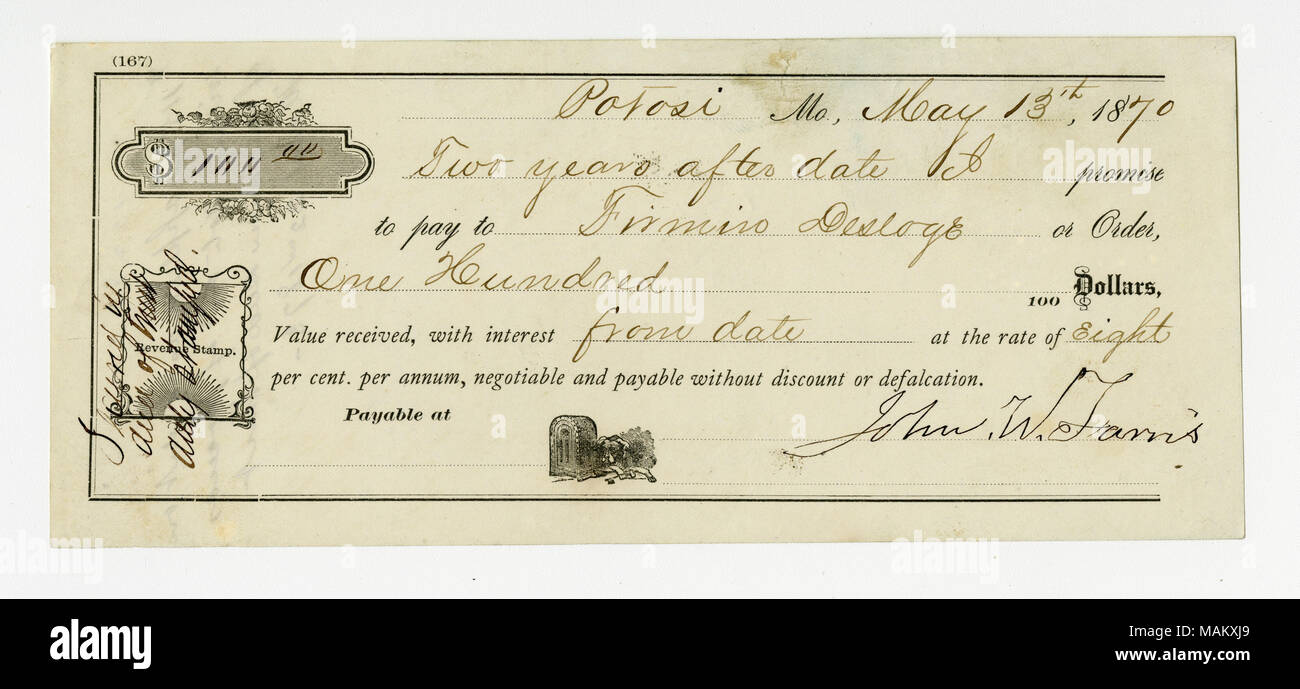 (167)
Potosi Mo, May 13th, 1870
$ 100 00
Two years after date I promise
to pay to Firmin Desloge or Order,
One Hundred 100 Dollars,
Value received, with interest from date at the rate of Eight
per cent. per annum, negotiable and payable without discount or defalcation.
Payable at
John W. Farris
Revenue Stamp.
alamy
Image ID: MAKXJ9
www.alamy.com